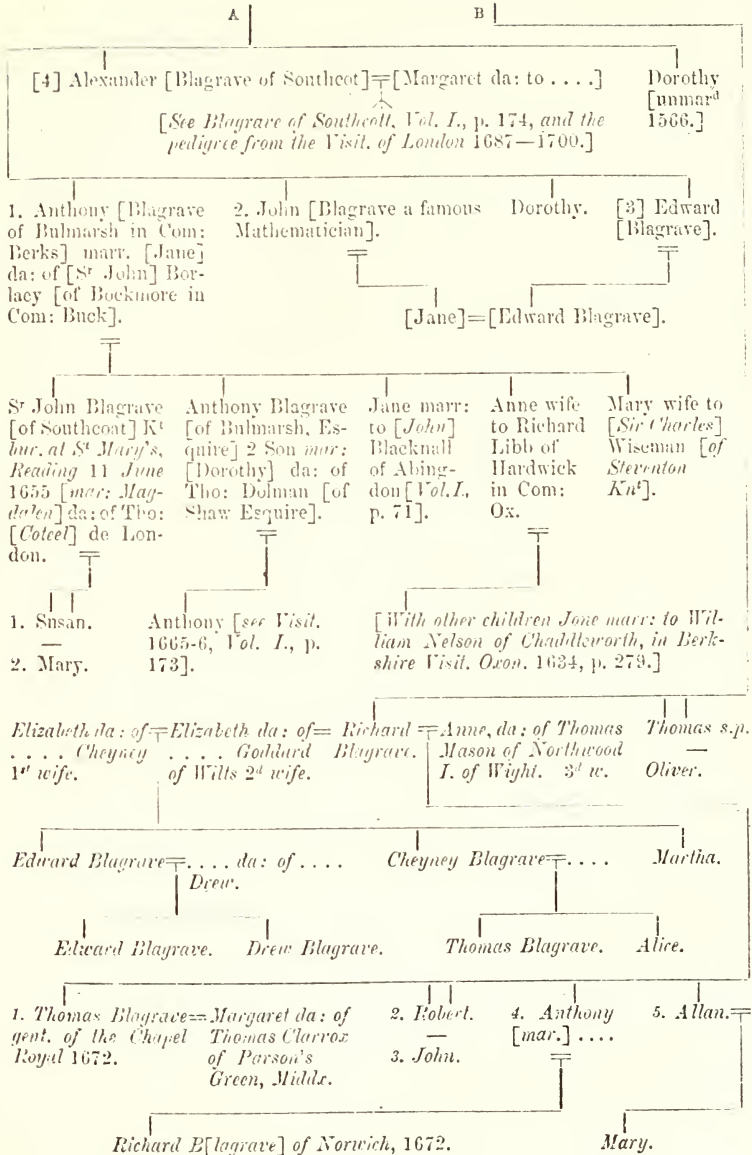 A B
[4] Alexander [Blagrave of Southcot]=[Margaret da: to . . . .]
Dorothy
[unmarᵈ
1566.]
[See Blagrave of Southcott, Vol. I., p. 174, and the
pedigree from the Visit. of London 1687—1700.]
1. Anthony [Blagrave
of Bulmarsh in Com:
Berks] marr. [Jane]
da: of [Sʳ John] Bor-
lacy [of Bockmore in
Com: Buck].
2. John [Blagrave a famous
Mathematician].
Dorothy.
[3] Edward
[Blagrave].
[Jane]=[Edward Blagrave].
Sʳ John Blagrave
[of Southcoat] Kᵗ
bur. at Sᵗ Mary's,
Reading 11 June
1655 [mar: Mag-
dalen] da: of Tho:
[Coteel] de Lon-
don.
Anthony Blagrave
[of Bulmarsh, Es-
quire] 2 Son mar:
[Dorothy] da: of
Tho: Dolman [of
Shaw Esquire].
Jane marr:
to [John]
Blacknall
of Abing-
don [Vol. I.,
p. 71].
Anne wife
to Richard
Libb of
Hardwick
in Com:
Ox.
Mary wife to
[Sir Charles]
Wiseman [of
Steventon
Knᵗ].
1. Susan.
—
2. Mary.
Anthony [see Visit.
1665-6, Vol. I., p.
173].
[With other children Jone marr: to Wil-
liam Nelson of Chaddleworth, in Berk-
shire Visit. Oxon. 1634, p. 279.]
Elizabeth da: of
. . . . Cheyney
1ˢᵗ wife.
=Elizabeth da: of=
. . . . Goddard
of Wilts 2ᵈ wife.
Richard
Blagrave.
=Anne, da: of Thomas
Mason of Northwood
I. of Wight. 3ᵈ w.
Thomas s.p.
—
Oliver.
Edward Blagrave=. . . . da: of . . . .
Drew.
Cheyney Blagrave=. . . .
Martha.
Edward Blagrave. Drew Blagrave.
Thomas Blagrave. Alice.
1. Thomas Blagrave=
gent. of the Chapel
Royal 1672.
Margaret da: of
Thomas Clarrox
of Parson's
Green, Middx.
2. Robert.
—
3. John.
4. Anthony
[mar.] . . . .
5. Allan.=
Richard B[lagrave] of Norwich, 1672.
Mary.